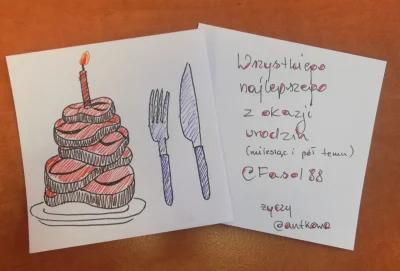 Wszystkiego
najlepszego
z okazji
urodzin
(miesiąc i pół temu)
@Fasol88
życzy
@antkowa